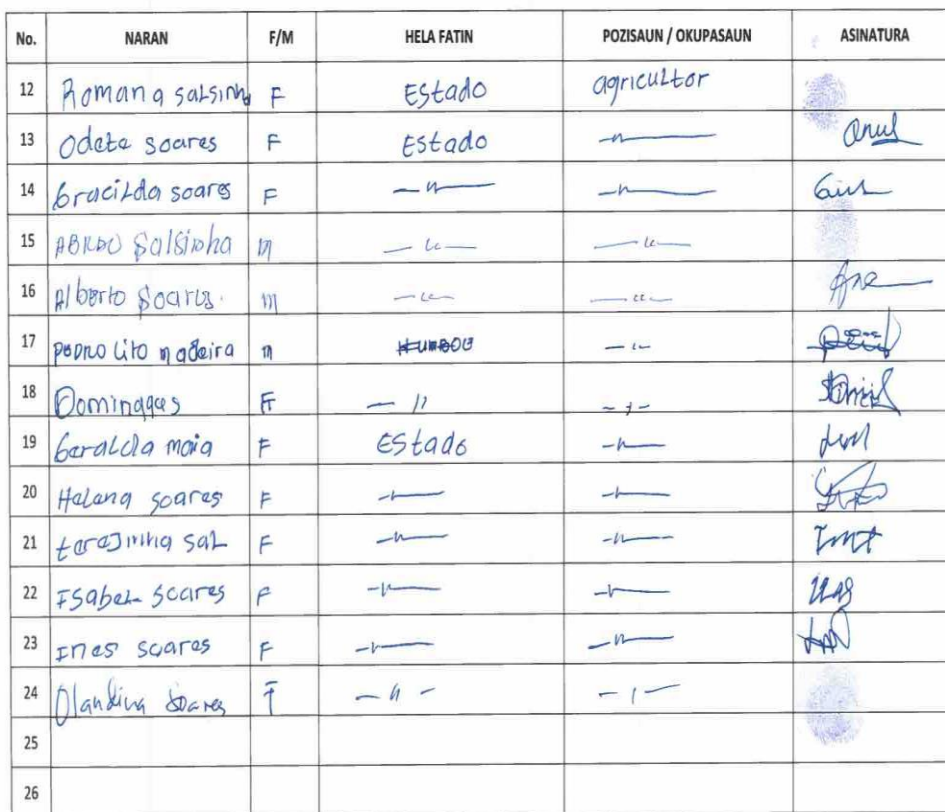 No. NARAN F/M HELA FATIN POZISAUN / OKUPASAUN ASINATURA
12 Romana salsinha F Estado agricultor
13 Odete soares F Estado -〃-
14 Gracilda soares F -〃- -〃-
15 ABILDO Salsinha m -〃- -〃-
16 Alberto Soares. m -〃- -〃-
17 PEDRO Lito madeira m -〃-
18 Domingas F -〃- -〃-
19 Geralda maia F EStado -〃-
20 Helena soares F -〃- -〃-
21 terejinha sal F -〃- -〃-
22 Isabel soares F -〃- -〃-
23 Ines soares F -〃- -〃-
24 Olandina Soares F -〃- -〃-
25
26